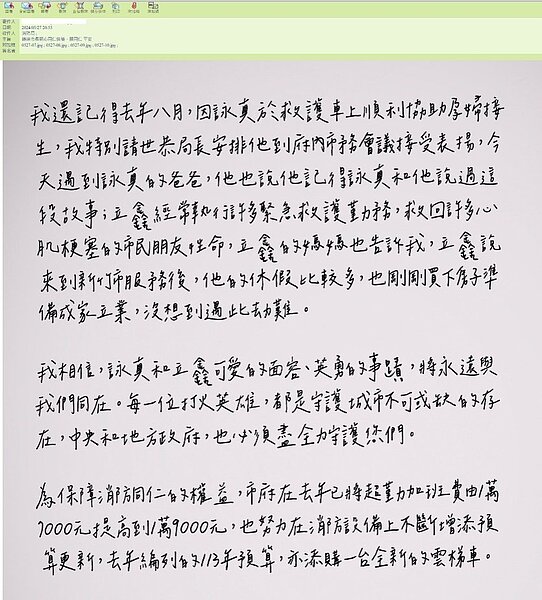 2024/05/27 20:55
我還記得去年八月，因詠真於救護車上順利協助孕婦接
生，我特別請世恭局長安排他到府內市務會議接受表揚，今
天遇到詠真的爸爸，他也說他記得詠真和他說過這
段故事；立鑫經常執行許多緊急救護勤務，救回許多心
肌梗塞的市民朋友性命，立鑫的媽媽也告訴我，立鑫說
來到新竹市服務後，他的休假比較多，也剛剛買下房子準
備成家立業，沒想到遇此劫難。
我相信，詠真和立鑫可愛的面容、英勇的事蹟，將永遠與
我們同在。每一位打火英雄，都是守護城市不可或缺的存
在，中央和地方政府，也必須盡全力守護您們。
為保障消防同仁的權益，市府在去年已將超勤加班費由1萬
7000元提高到1萬9000元，也努力在消防設備上不斷增添預
算更新，去年編列的113年預算，亦添購一台全新的雲梯車。